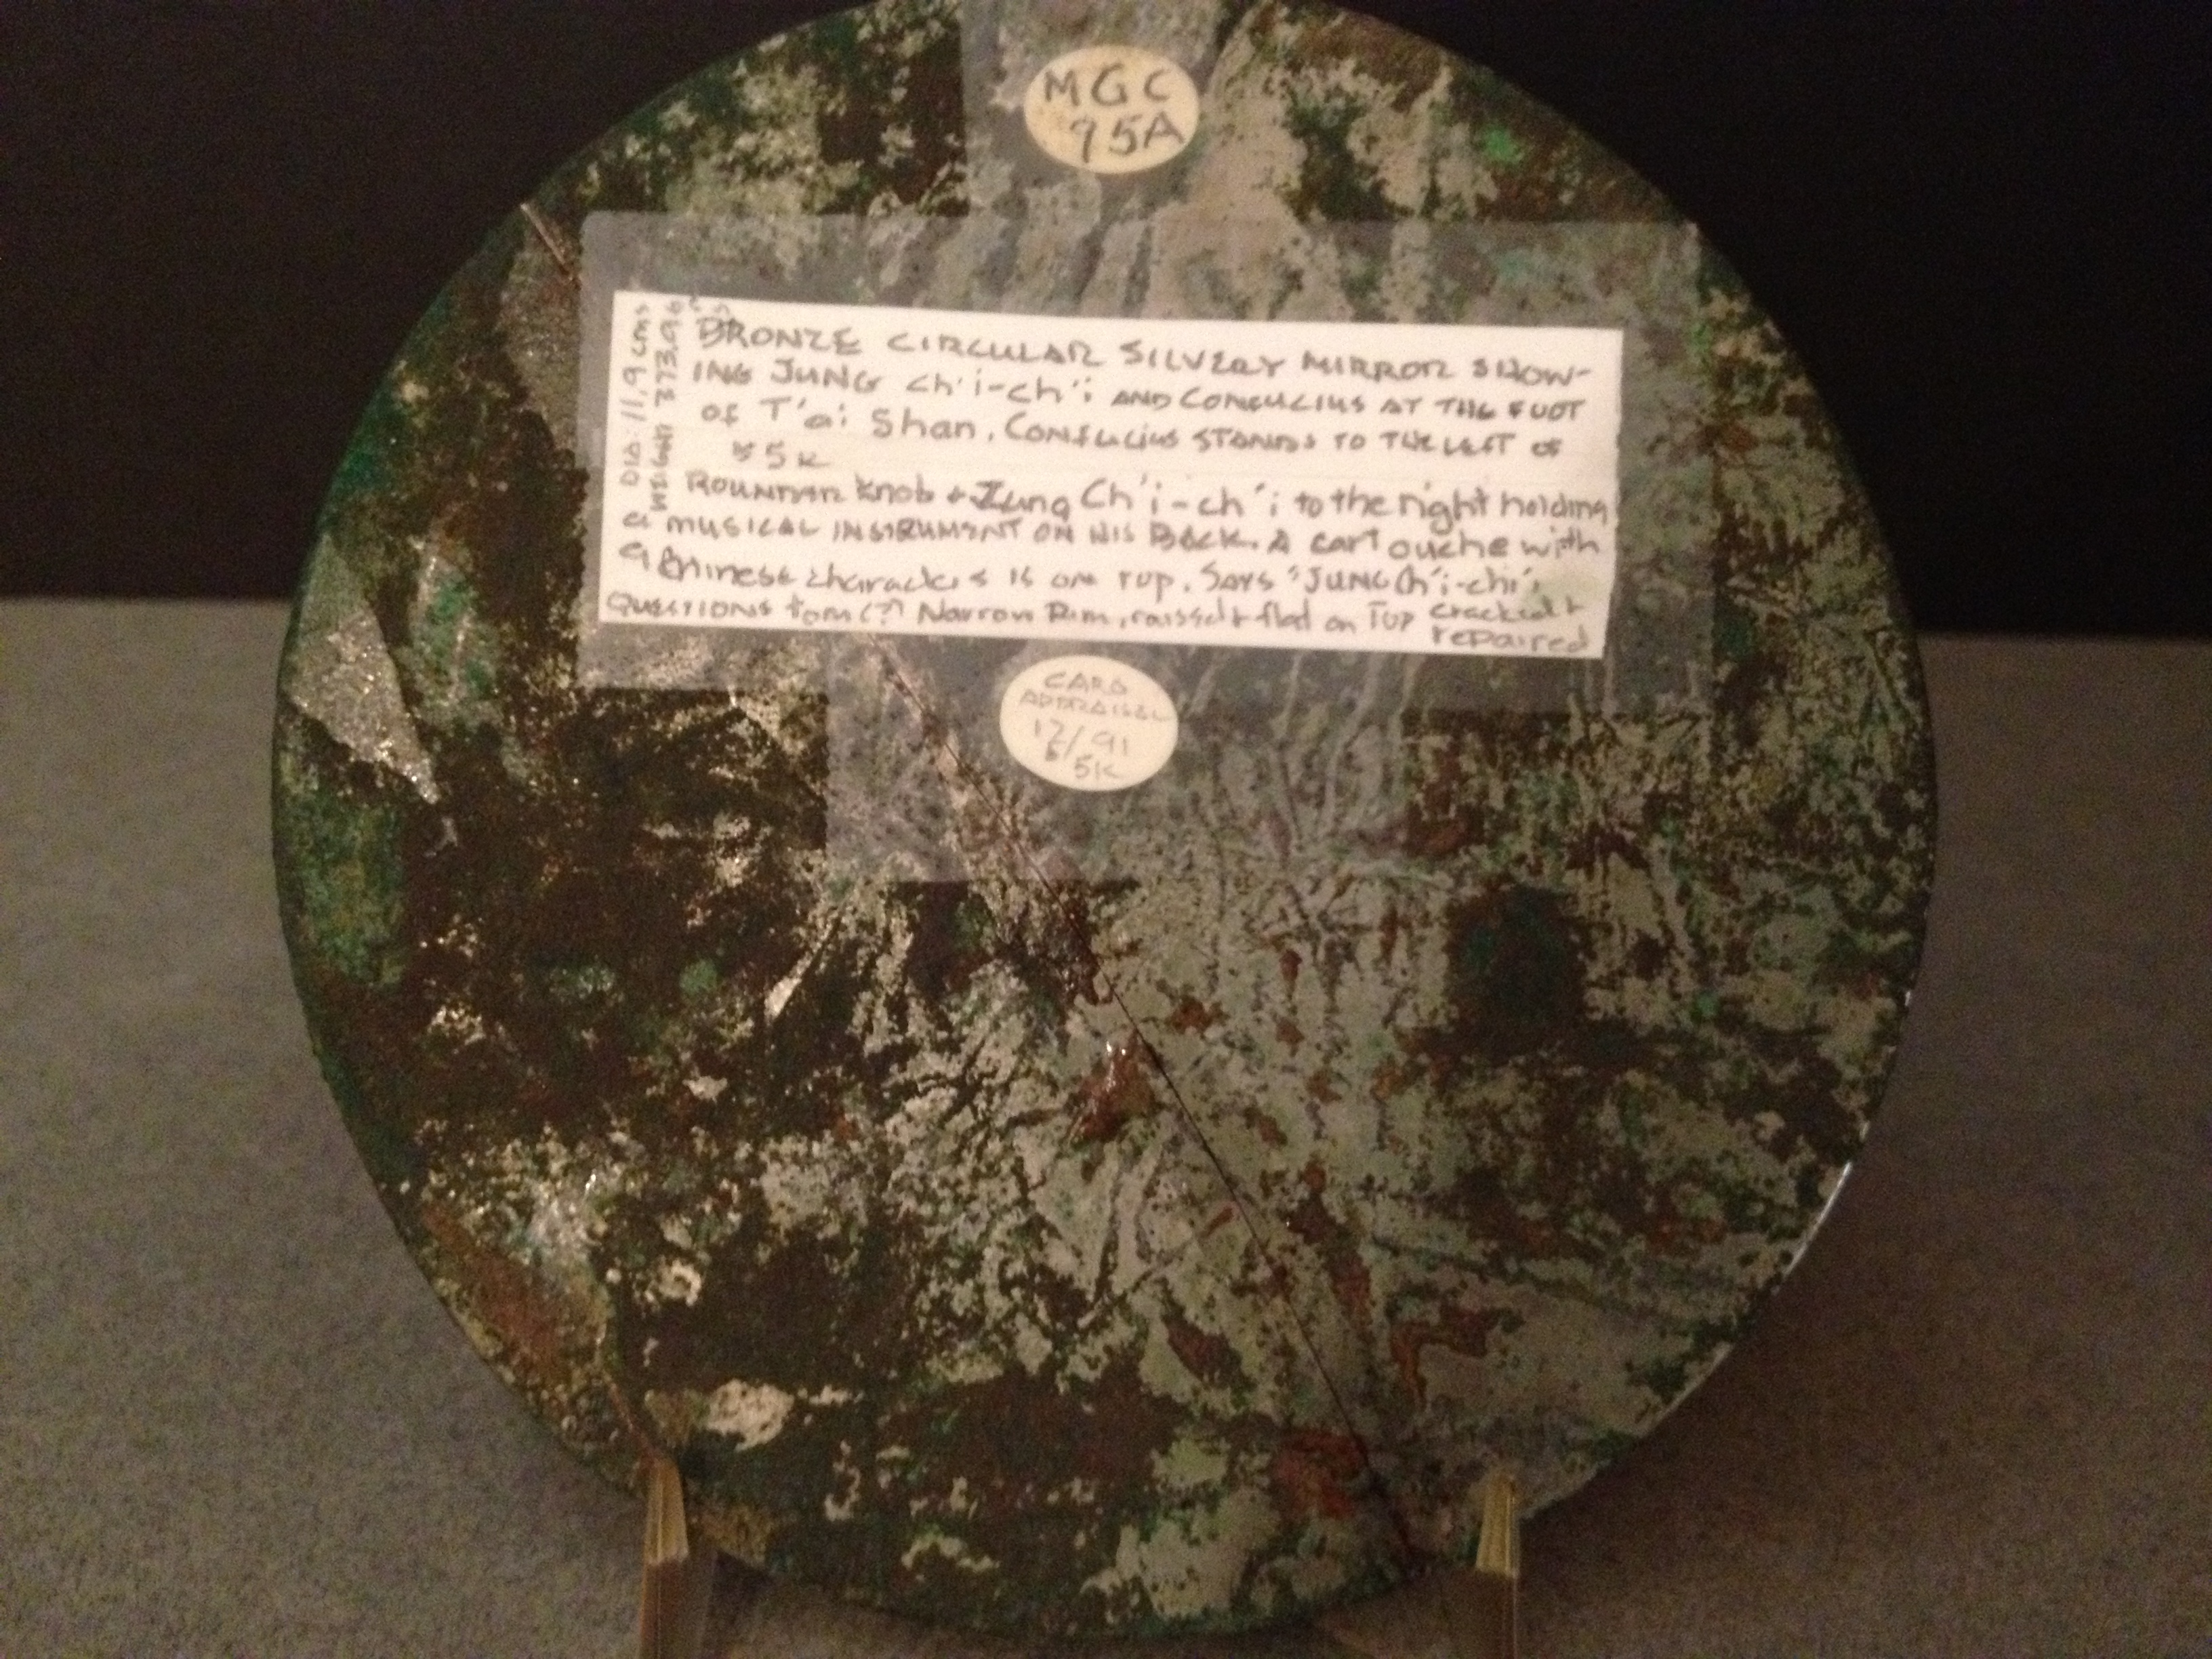 MGC
95A
DIA. 11.9 cms
WEIGHT 373.9
BRONZE CIRCULAR SILVERY MIRROR SHOW-
ING JUNG Ch'i-ch'i AND CONFUCIUS AT THE FOOT
OF T'ai Shan. CONFUCIUS STANDS TO THE LEFT OF
5K
knob + Jung Ch'i-ch'i to the right holding
a MUSICAL INSTRUMENT ON HIS BACK. A cartouche with
9 Chinese characters is on TOP. SAYS "JUNG Ch'i-chi',
QUESTIONS from(?) Narrow Rim, raised + flat on TOP cracked +
repaired
CARO
APPRAISAL
12/91
5K